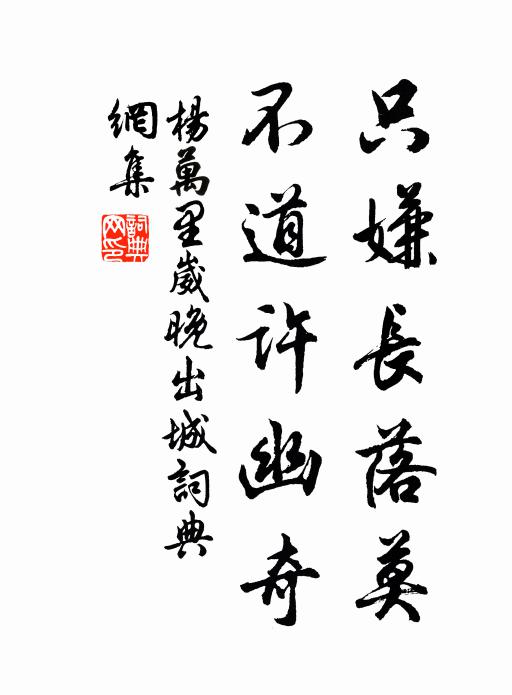 只嫌長落莫
不道許幽奇
楊萬里歲晚出城詞典
網集
詞典
网印